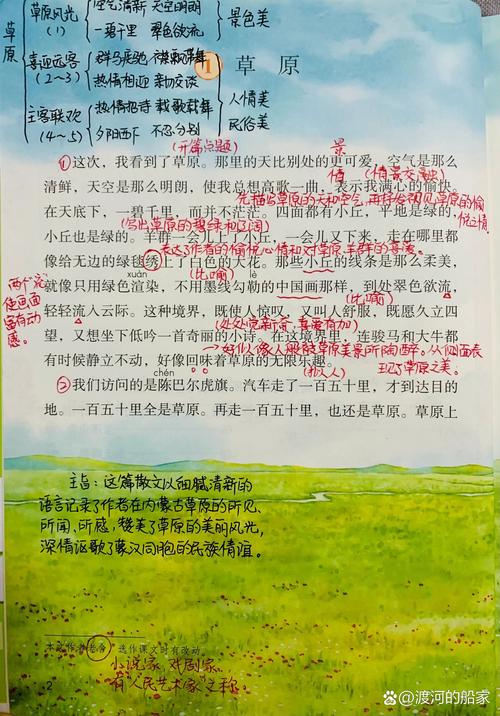 草原
草原风光
(1)
空气清新 天空明朗
一碧千里 翠色欲流
景色美
喜迎远客
(2~3)
群马疾驰 襟飘带舞
热情相迎 亲切交谈
主客联欢
(4~5)
热情招待 载歌载舞
夕阳西下 不忍分别
人情美
民俗美
1 草原
(开篇点题)
景
①这次,我看到了草原。那里的天比别处的更可爱,空气是那么
情 (情景交融)
清鲜,天空是那么明朗,使我总想高歌一曲,表示我满心的愉快。
先描写草原的天和空气,再抒发初见草原的愉
悦之情。
在天底下,一碧千里,而并不茫茫。四面都有小丘,平地是绿的,
写出草原的碧绿和辽阔
小丘也是绿的。羊群一会儿上了小丘,一会儿又下来,走在哪里都
表达了作者的愉悦心情和对草原、羊群的喜爱。
像给无边的绿毯绣上了白色的大花。那些小丘的线条是那么柔美,
两个“流”
使画面
富有动
感。
xuàn
(比喻)
(比喻)
就像只用绿色渲染,不用墨线勾勒的中国画那样,到处翠色欲流,
轻轻流入云际。这种境界,既使人惊叹,又叫人舒服,既愿久立四
(处处觉新奇,喜爱有加)
望,又想坐下低吟一首奇丽的小诗。在这境界里,连骏马和大牛都
好似像人般被草原美景所陶醉。从侧面表
现了草原之美。
有时候静立不动,好像回味着草原的无限乐趣。
chén
(拟人)
②我们访问的是陈巴尔虎旗。汽车走了一百五十里,才到达目的
地。一百五十里全是草原。再走一百五十里,也还是草原。草原上
主旨:这篇散文以细腻清新的
语言记录了作者在内蒙古草原的所见、
所闻、所感,赞美了草原的美丽风光,
深情讴歌了蒙汉同胞的民族情谊。
本文作者老舍,选作课文时有改动。
小说家、戏剧家
有“人民艺术家”之称。
2
@渡河的船家